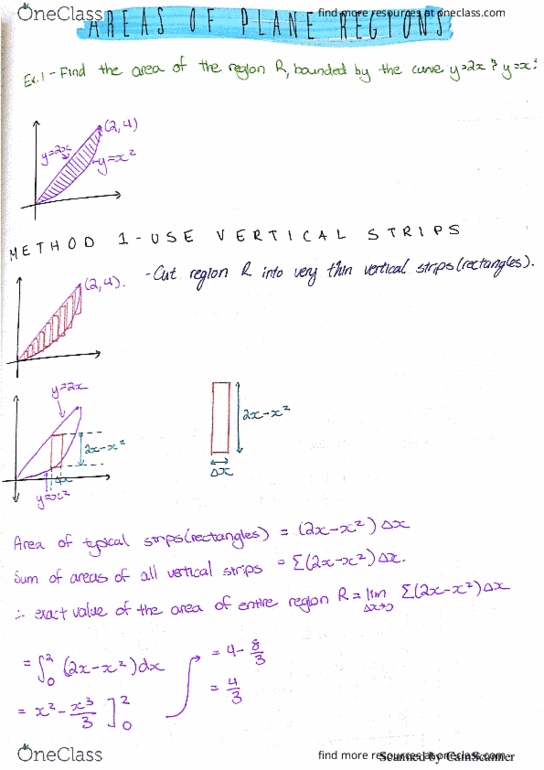 OneClass
find more resources at oneclass.com
AREAS OF PLANE REGIONS
Ex.1 - Find the area of the region R, bounded by the curve y=2x & y=x²
(2,4)
y=2x
y=x²
METHOD 1 - USE VERTICAL STRIPS
- Cut region R into very thin vertical strips (rectangles).
(2,4).
y=2x
2x-x²
2x-x²
Δx
Δx
y=x²
Area of typical strips (rectangles) = (2x-x²) Δx
Sum of areas of all vertical strips = Σ(2x-x²) Δx.
∴ exact value of the area of entire region R = lim Δx→0 Σ(2x-x²) Δx
= ∫₀² (2x-x²) dx
= x² - x³/3 ]₀²
= 4 - 8/3
= 4/3
OneClass
find more resources at oneclass.com
Scanned by CamScanner